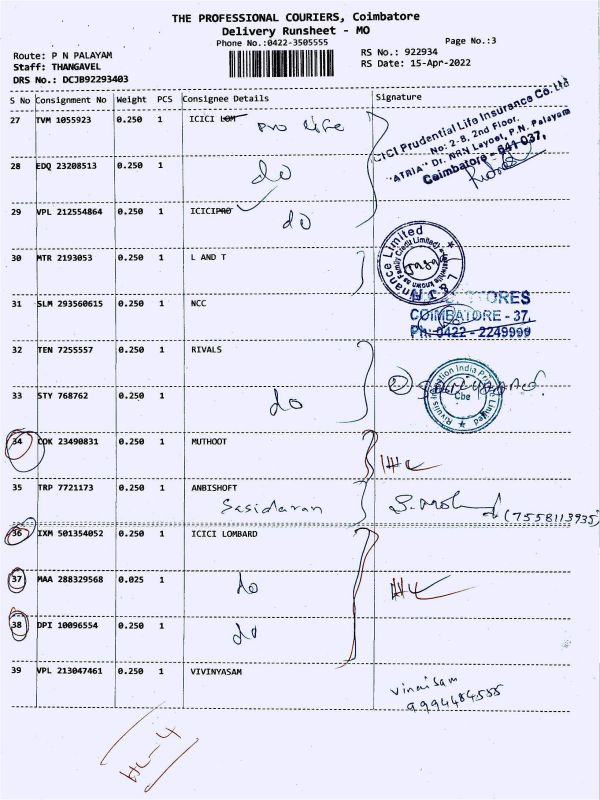 THE PROFESSIONAL COURIERS, Coimbatore
Delivery Runsheet - MO
Phone No.:0422-3505555
Page No.:3
Route: P N PALAYAM
RS No.: 922934
Staff: THANGAVEL
RS Date: 15-Apr-2022
DRS No.: DCJB92293403
S No Consignment No Weight PCS Consignee Details Signature
27 TVM 1055923 0.250 1 ICICI LOM pro life
ICICI Prudential Life Insurance Co. Ltd
No: 2-8, 2nd Floor,
"ATRIA" Dr. NRN Layout, P.N. Palayam
Coimbatore - 641 037.
28 EDQ 23208513 0.250 1 do
29 VPL 212554864 0.250 1 ICICIPRO do
30 MTR 2193053 0.250 1 L AND T
L & T Finance Limited
(Erstwhile known as Family Credit Limited)
31 SLM 293560615 0.250 1 NCC
STORES
COIMBATORE - 37.
Ph: 0422 - 2249999
32 TEN 7255557 0.250 1 RIVALS
33 STY 768762 0.250 1 do
Rivulis Irrigation India Private Limited
Cbe
34 COK 23490831 0.250 1 MUTHOOT
35 TRP 7721173 0.250 1 ANBISHOFT
Sasidaran
(7558113935)
36 IXM 501354052 0.250 1 ICICI LOMBARD
37 MAA 288329568 0.025 1 do
38 DPI 10096554 0.250 1 do
39 VPL 213047461 0.250 1 VIVINYASAM
vinaisam
9994484555